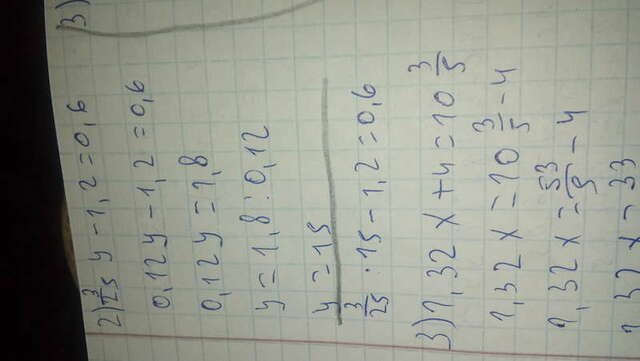 2) 3/25 y - 1,2 = 0,6
0,12y - 1,2 = 0,6
0,12y = 1,8
y = 1,8 : 0,12
y = 15
3/25 · 15 - 1,2 = 0,6
3) 1,32x + 4 = 10 3/5
1,32x = 10 3/5 - 4
1,32x = 53/5 - 4
1,32x = 33
3)